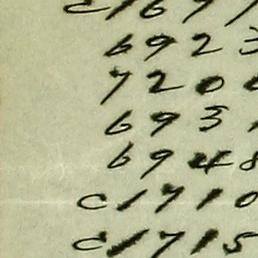 C167
6923
720
693
6948
C1710
C1715